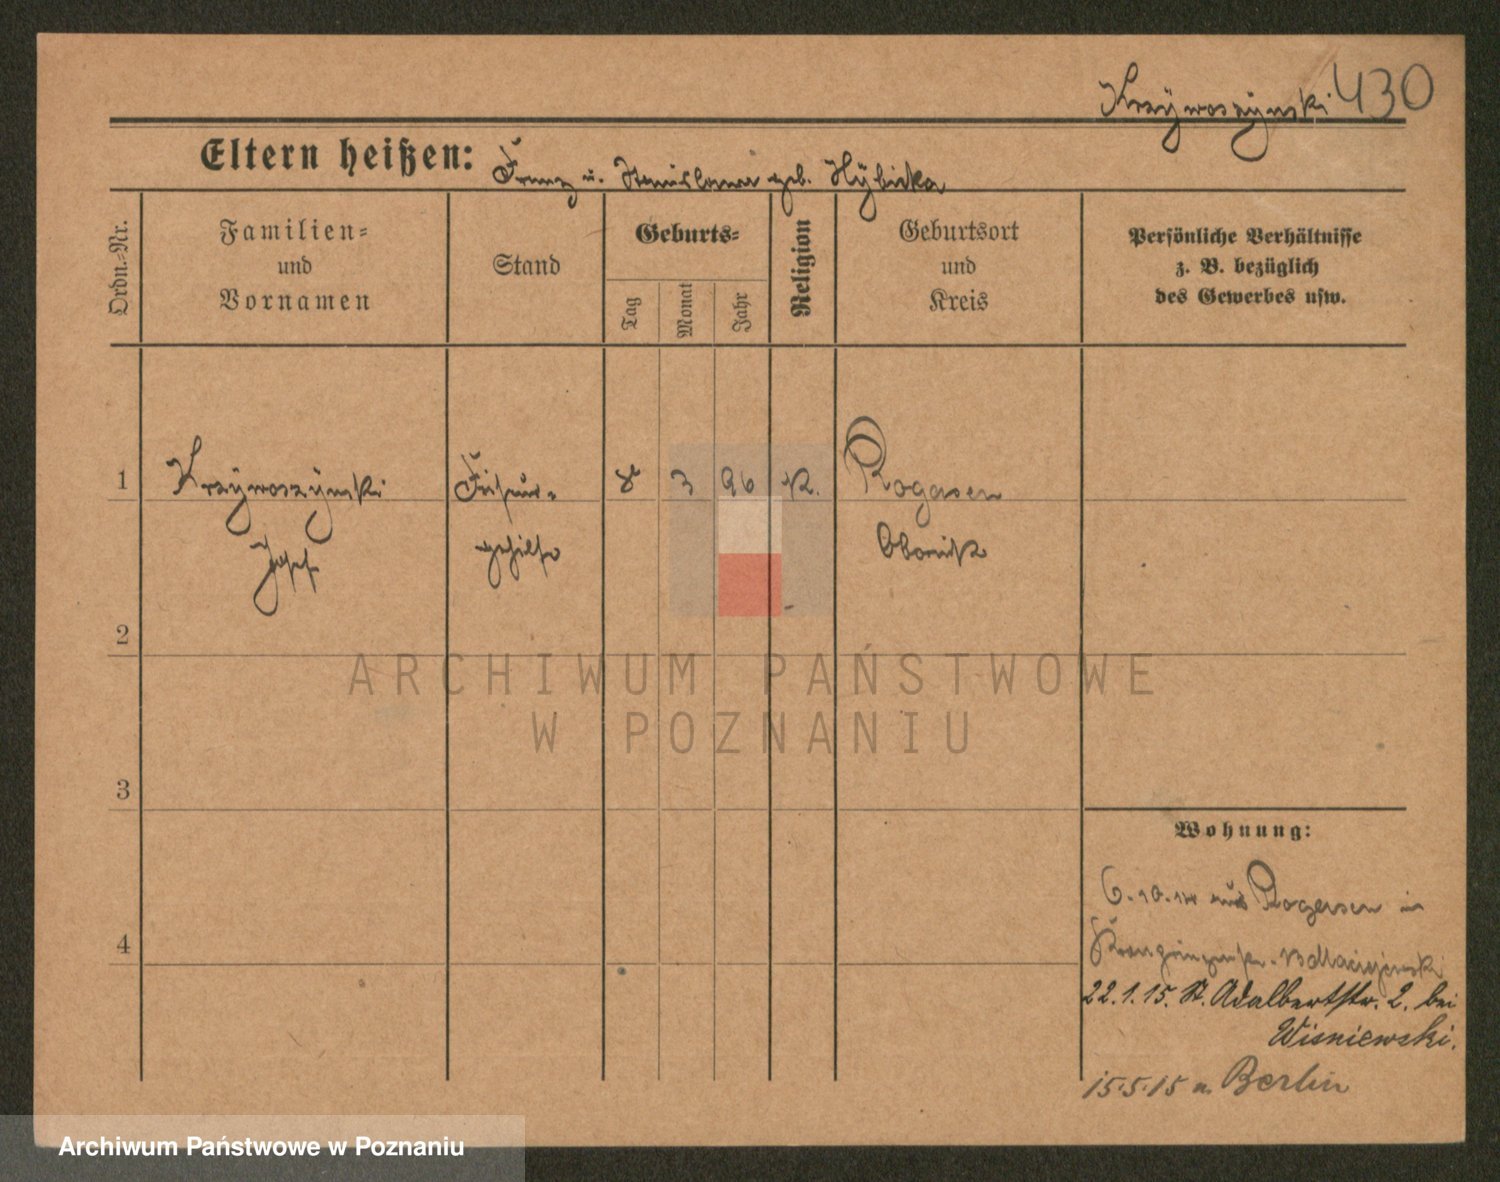 Krzÿwoszÿnski 430
Eltern heißen: Franz u. Stanislawa geb. Hÿbicka
Ordn.-Nr.
Familien-
und
Vornamen
Stand
Geburts-
Tag
Monat
Jahr
Religion
Geburtsort
und
Kreis
Persönliche Verhältnisse
z. B. bezüglich
des Gewerbes usw.
1 Krzÿwoszÿnski Friseur- 8 3 96 K. Rogasen
Josef gehilfe Obornik
2
3
4
Wohnung:
6.10.14 aus Rogasen in
22.1.15. St. Adalbertstr. 2. bei
Wisniewski.
15.5.15 n. Berlin
ARCHIWUM PAŃSTWOWE
W POZNANIU
Archiwum Państwowe w Poznaniu